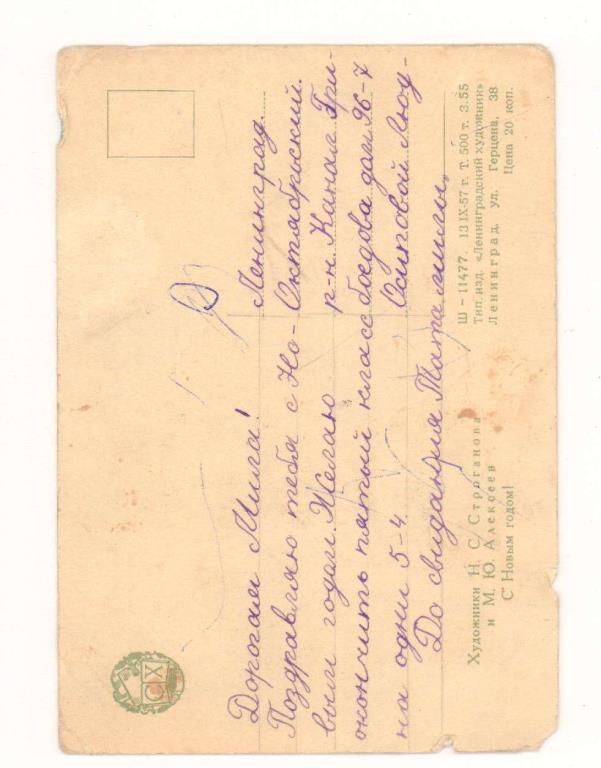 Дорогая Мила!
Поздравляю тебя с Но-
вым годом. Желаю
окончить пятый класс
на одни 5-4.
До свидания Тата
Ленинград.
Октябрьский.
р-н. Канал Гри-
боедова дом 96-7
Осиповой Люд-
милы.
Художники Н. С. Строганова
и М. Ю. Алексеев
С Новым годом!
Ш — 11477. 13 IX-57 г. Т. 500 т. З. 55
Тип. изд. «Ленинградский художник»
Ленинград, ул. Герцена, 38
Цена 20 коп.